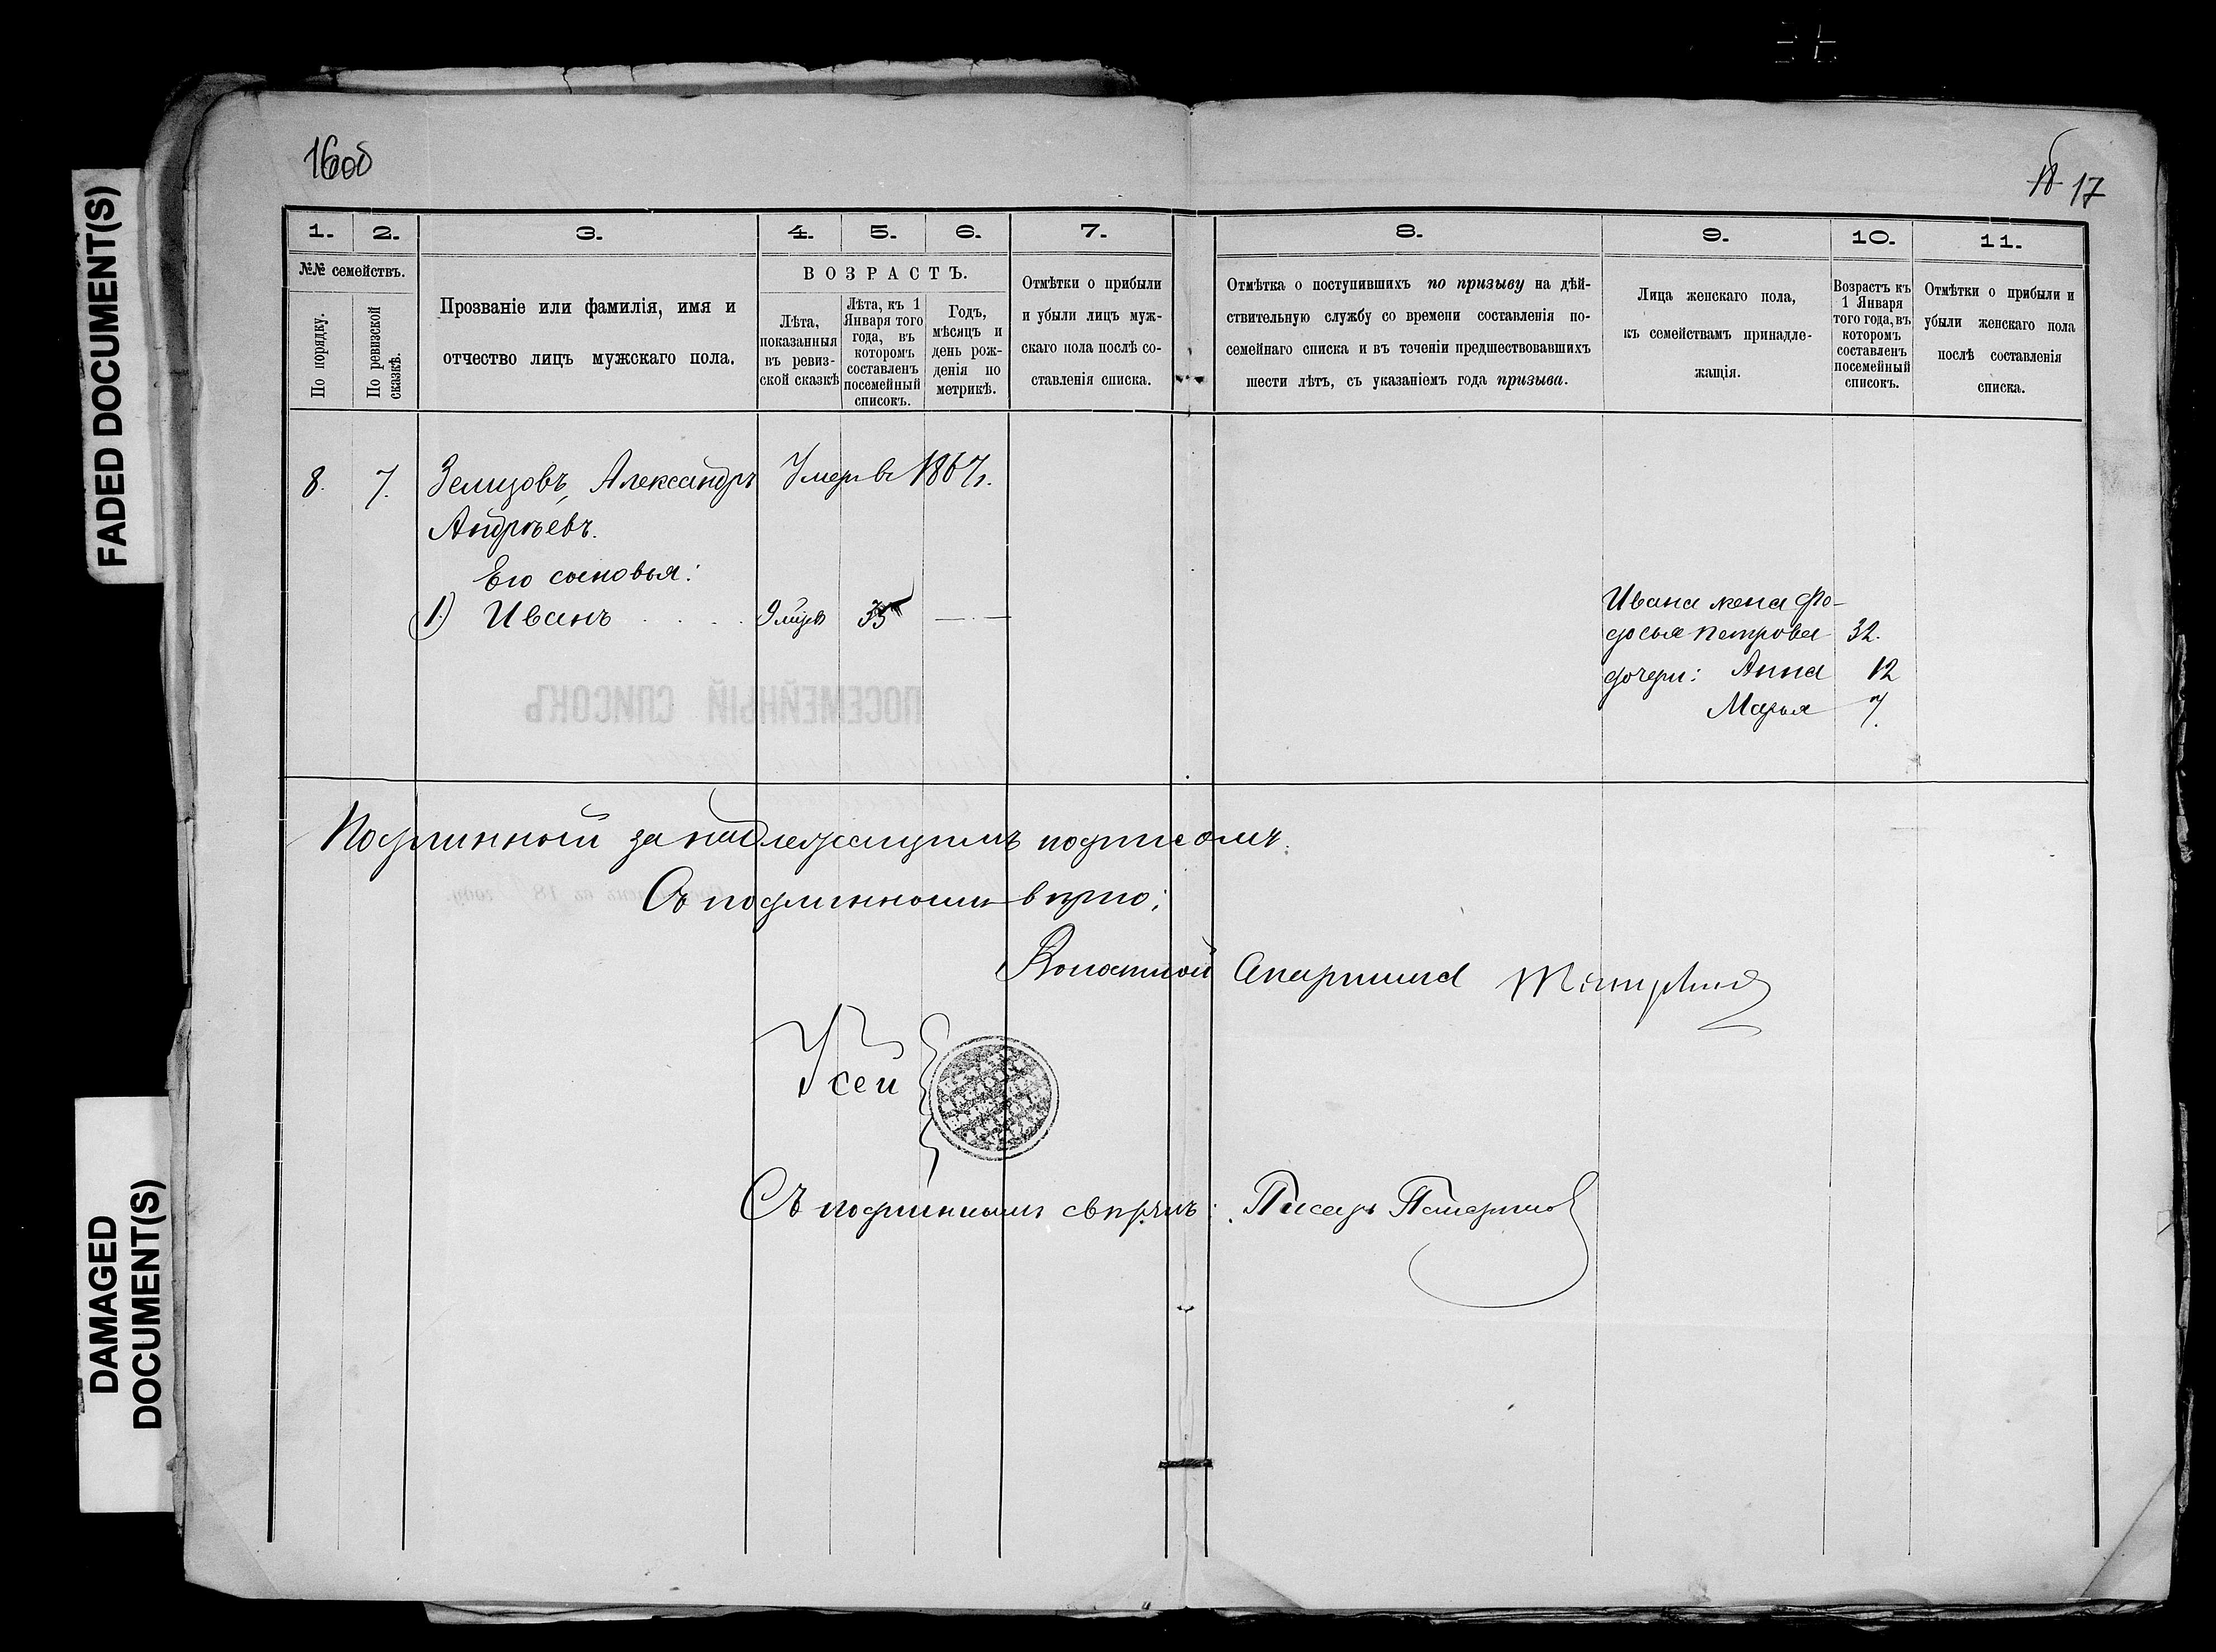 FADED DOCUMENT(S)
DAMAGED
DOCUMENT(S)
16об
17
1. 2. 3. 4. 5. 6. 7. 8. 9. 10. 11.
№№ семействъ.
По порядку.
По ревизской
сказкѣ.
Прозваніе или фамилія, имя и
отчество лицъ мужскаго пола.
ВОЗРАСТЪ.
Лѣта,
показанныя
въ ревиз-
ской сказкѣ
Лѣта, къ 1
Января того
года, въ
котором­ъ
составленъ
посемейный
списокъ.
Годъ,
мѣсяцъ и
день рож-
денія по
метрикѣ.
Отмѣтки о прибыли
и убыли лицъ муж-
скаго пола послѣ со-
ставленія списка.
Отмѣтка о поступившихъ по призыву на дѣй-
ствительную службу со времени составленія по-
семейнаго списка и въ теченіи предшествовавшихъ
шести лѣтъ, съ указаніемъ года призыва.
Лица женскаго пола,
къ семействамъ принадле-
жащія.
Возрастъ къ
1 Января
того года, въ
котором­ъ
составленъ
посемейный
списокъ.
Отмѣтки о прибыли и
убыли женскаго пола
послѣ составленія
списка.
8. 7. Земцовъ, Александръ Умеръ въ 1867г.
Андрѣевъ.
Его сыновья:
1) Иванъ . . . . 9 мцъ 35 — —
Ивана жена Фе-
досья Петрова 32.
дочери: Анна 12
Марья 7.
ПОСЕМЕЙНЫЙ СПИСОКЪ
Подлинный за надлежащимъ подписомъ.
Съ подлиннымъ вѣрно:
Волостной Старшина
Съ подлиннымъ свѣрялъ: Писарь